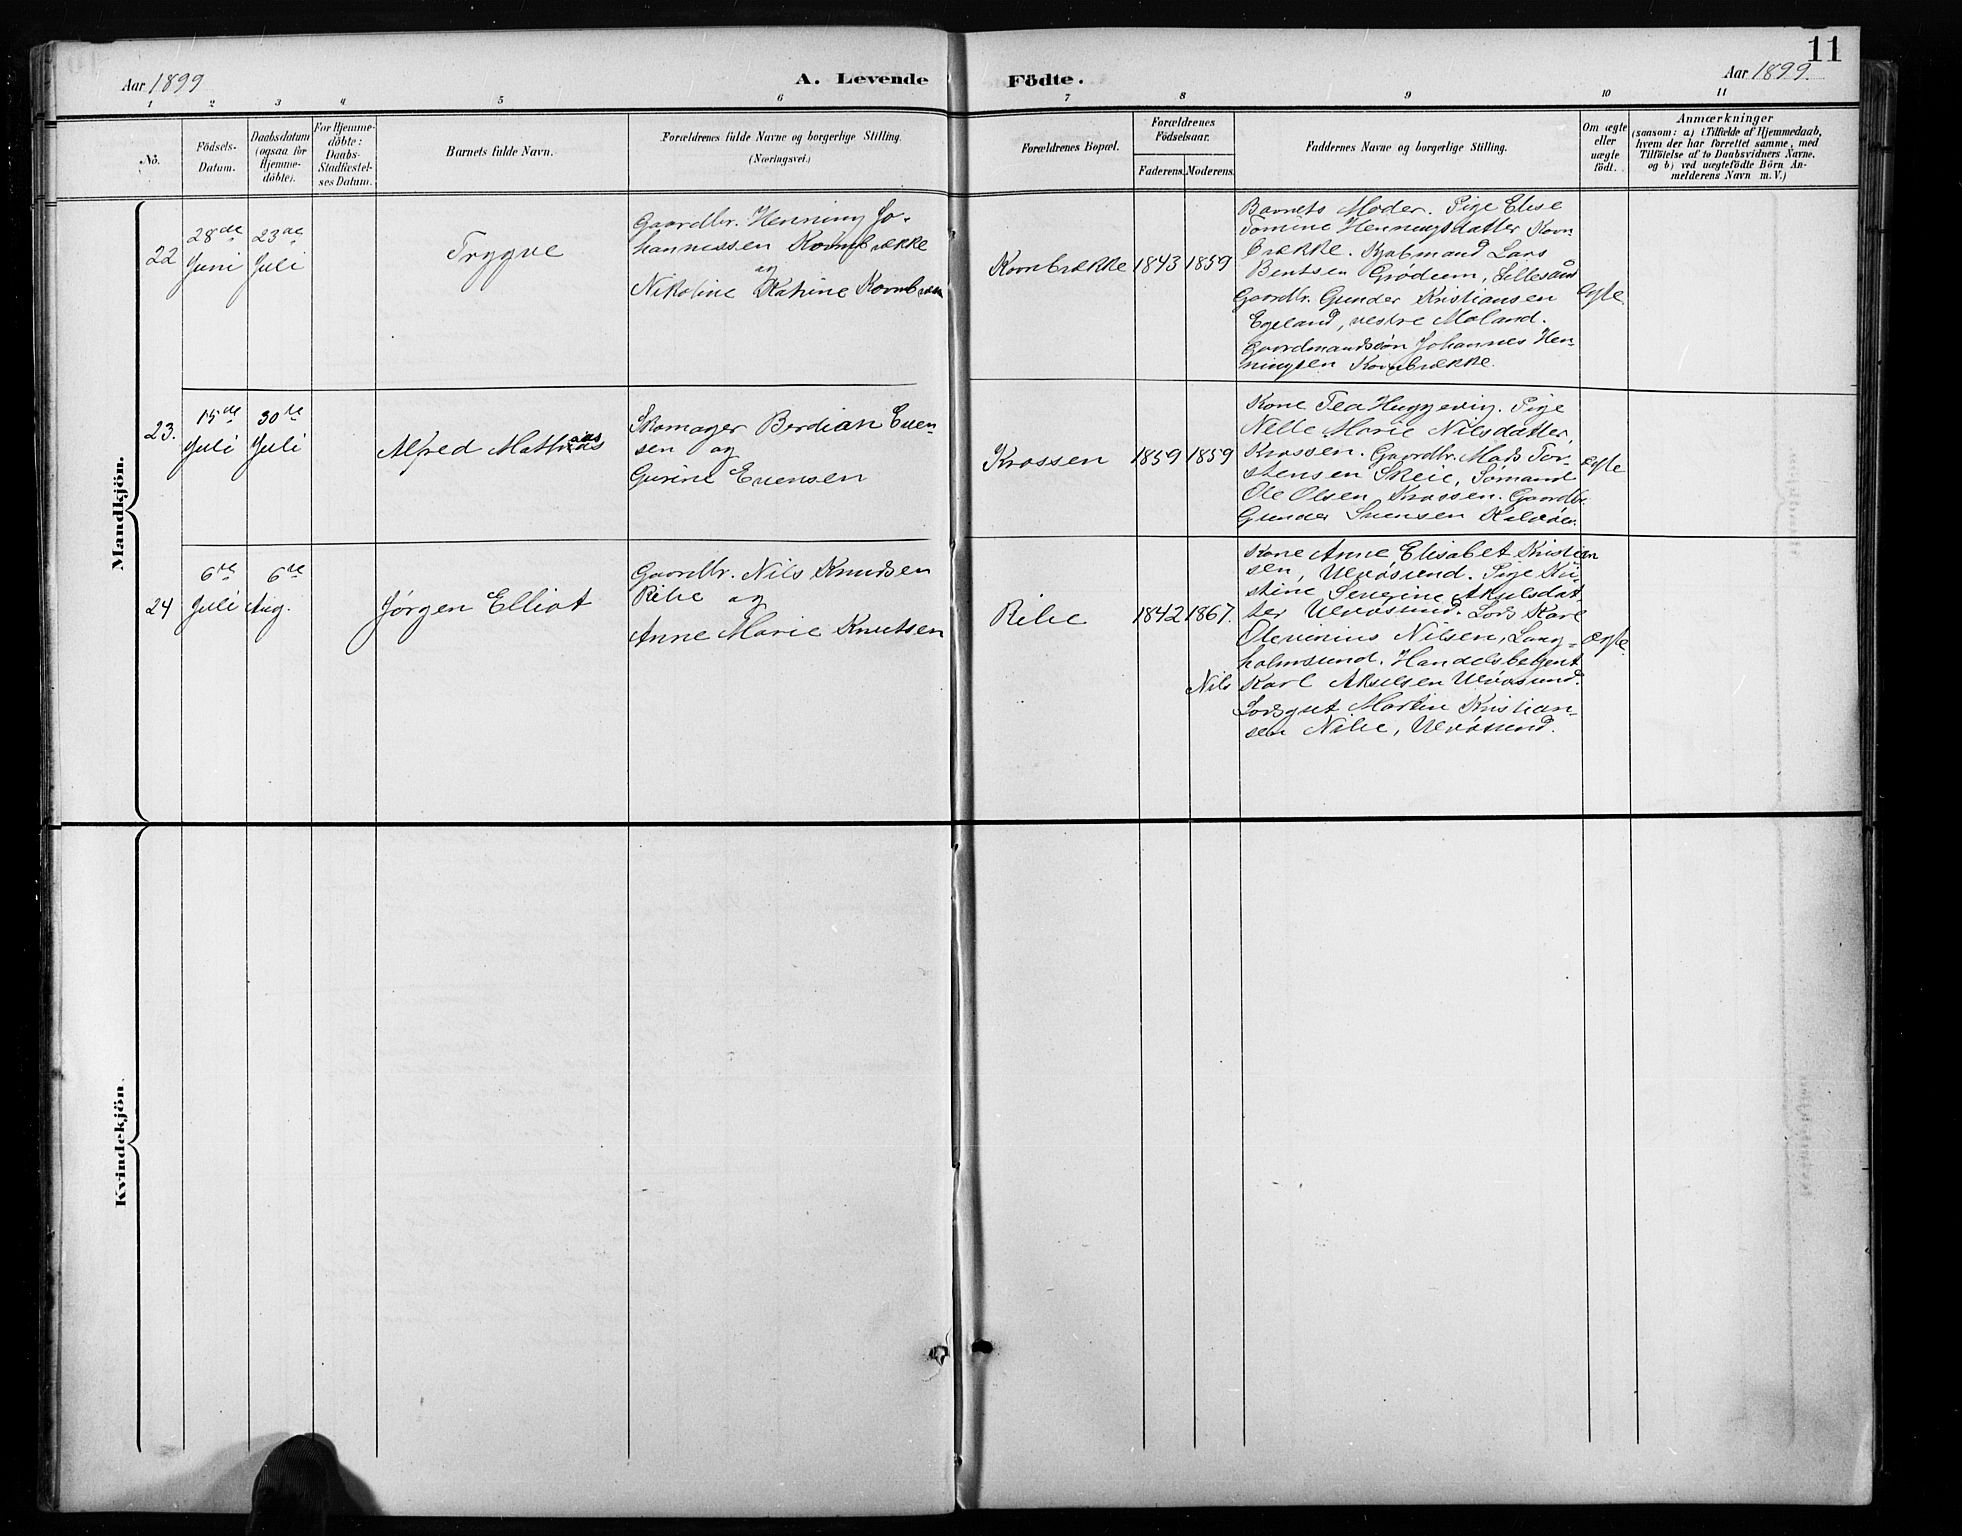 11
Aar 1899
A. Levende Födte.
Aar 1899.
1 2 3 4 5 6 7 8 9 10 11
No.
Födsels-
Datum.
Daabsdatum
(ogsaa for
Hjemme-
döbte).
For Hjemme-
döbte:
Daabs-
Stadfæstel-
ses Datum.
Barnets fulde Navn.
Forældrenes fulde Navne og borgerlige Stilling.
(Næringsvei.)
Forældrenes Bopæl.
Forældrenes
Födselsaar.
Faderens. Moderens.
Faddernes Navne og borgerlige Stilling.
Om ægte
eller
uægte
födt.
Anmærkninger
(saasom: a) i Tilfælde af Hjemmedaab,
hvem der har forrettet samme, med
Tilföielse af to Daabsvidners Navne.
og b) ved uægtefödte Börn An-
melderens Navn m. V.)
Mandkjön.
22
28de
Juni
23de
Juli
Trygve
Gaardbr. Henning Jo-
hannessen Kornbrække
og
Nikoline Katrine Kornbræk
Kornbrække
1843
1859
Barnets Moder. Pige Elise
Tomine Henningsdatter Korn
brække. Kjøbmand Lars
Bentsen Grødum, Lillesand
Gaardbr. Gunder Kristiansen
Egeland, vestre Moland.
Gaardmandssøn Johannes Hen-
ningsen Kornbrække.
ægte
23.
15de
Juli
30te
Juli
Alfred Mathias
Skomager Berdian Even-
sen og
Gurine Evensen
Krossen
1859
1859
Kone Tea Huggevig. Pige
Nelle Marie Nilsdatter,
Krossen. Gaardbr. Mads Tor-
stensen Skeie, Sømand
Ole Olsen Krossen. Gaardbr.
Gunder Svensen
ægte
24
6te
Juli
6te
Aug.
Jørgen Elliot
Gaardbr. Nils Knudsen
Ribe og
Anne Marie Knutsen
Ribe
1842
1867.
Kone Anne Elisabet Kristian
sen, Ulvøsund. Pige Kri-
stine Akselsdat
ter Ulvøsund. Lods Karl
Olevinius Nilsen, Lang-
holmsund. Handelsbetjent
Nils Karl Akselsen Ulvøsund.
Lodsgut Martin Kristian-
sen Ribe, Ulvøsund.
ægte
Kvindekjön.